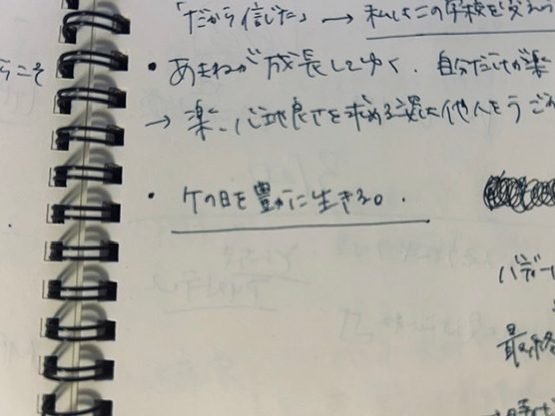 「だから信じた」 → 私はこの学校を変える
らこそ
・あまねが成長してゆく. 自分だけが楽
→ 楽、心地良さを求める姿は他人をうご
・ケの日を豊かに生きる。
バデ
最終